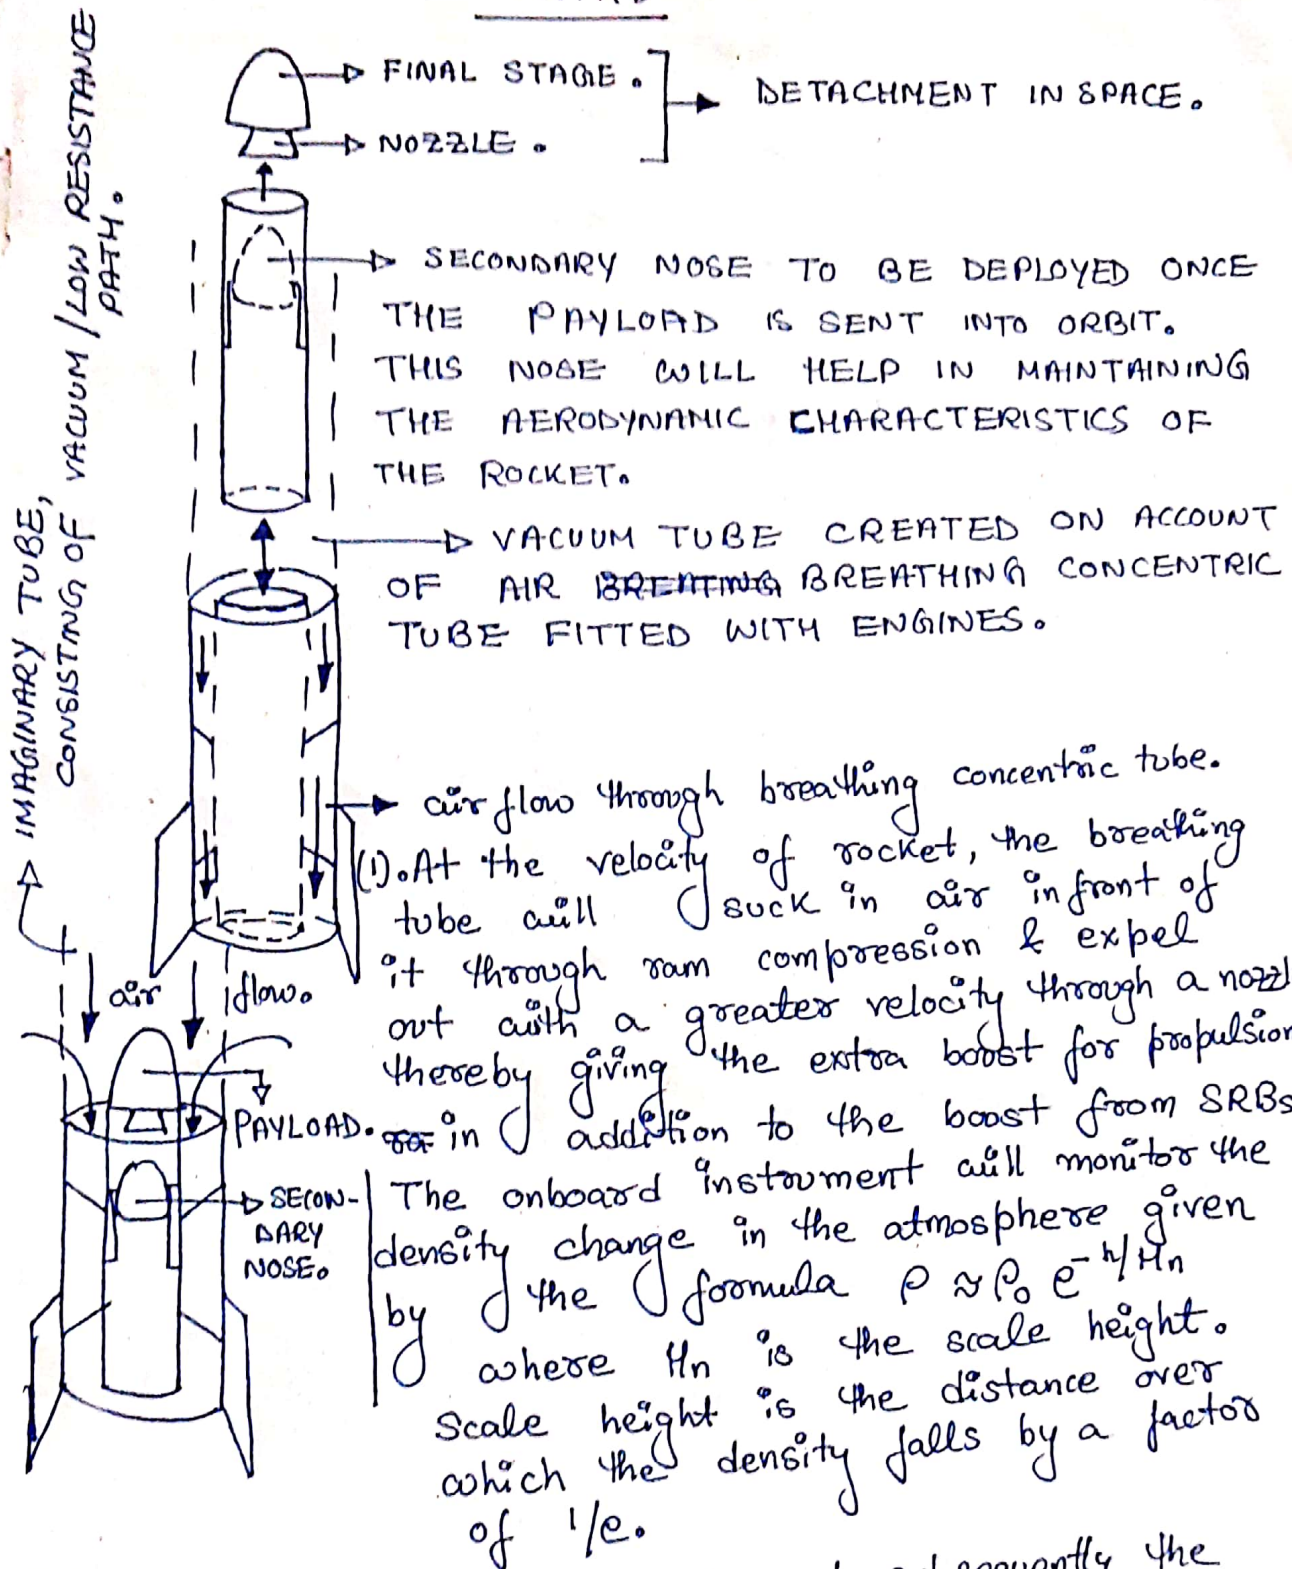 FINAL STAGE.
NOZZLE.
DETACHMENT IN SPACE.
IMAGINARY TUBE,
CONSISTING OF VACUUM/LOW RESISTANCE
PATH.
SECONDARY NOSE TO BE DEPLOYED ONCE
THE PAYLOAD IS SENT INTO ORBIT.
THIS NOSE WILL HELP IN MAINTAINING
THE AERODYNAMIC CHARACTERISTICS OF
THE ROCKET.
VACUUM TUBE CREATED ON ACCOUNT
OF AIR BREATHING CONCENTRIC
TUBE FITTED WITH ENGINES.
air flow through breathing concentric tube.
(1). At the velocity of rocket, the breathing
tube will suck in air in front of
it through ram compression & expel
out with a greater velocity through a nozzl
thereby giving the extra boost for propulsion
in addition to the boost from SRBs
air flow.
PAYLOAD.
SECON-
DARY
NOSE.
The onboard instrument will monitor the
density change in the atmosphere given
by the formula ρ ≈ ρ₀ e^-h/Hn
where Hn is the scale height.
Scale height is the distance over
which the density falls by a factor
of 1/e.
the